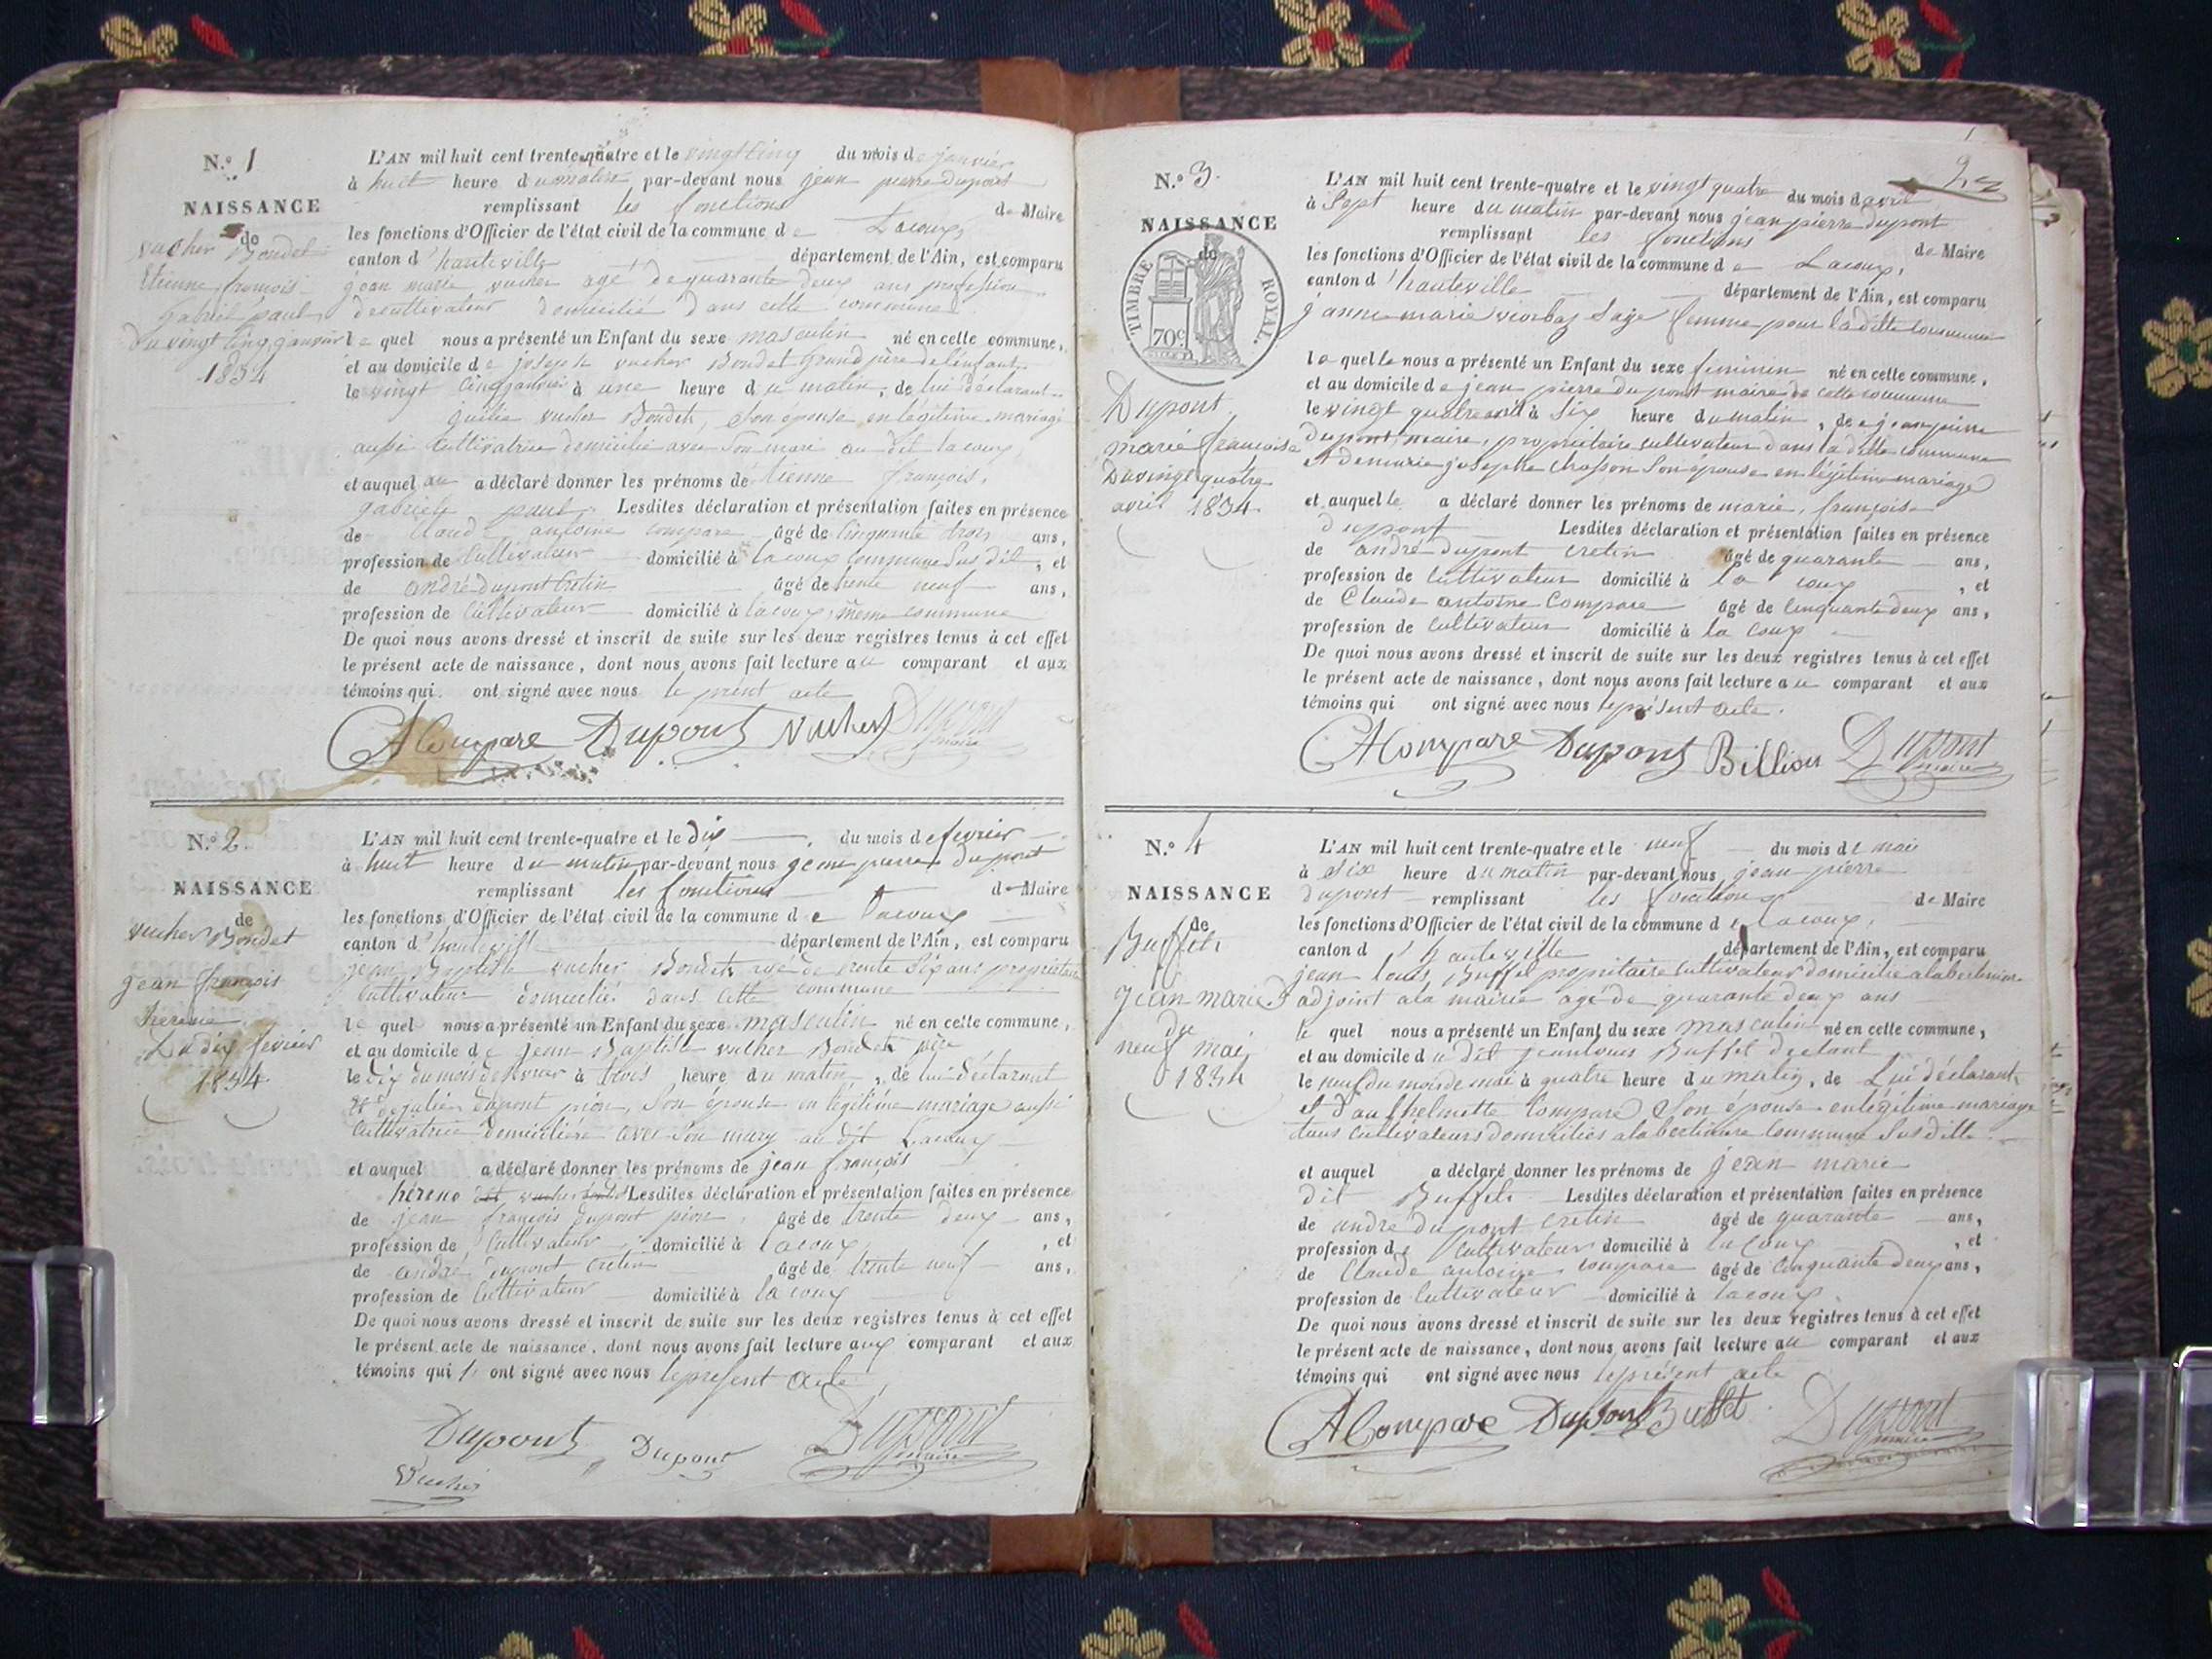 N.° 1
NAISSANCE
de
vucher Bondet
Etienne françois
gabriel paul
du vingt cinq janvier
1834
L'AN mil huit cent trente-quatre et le vingt cinq du mois de janvier
à huit heure du matin par-devant nous jean pierre dupont
remplissant les fonctions de Maire
les fonctions d'Officier de l'état civil de la commune de Lacoux
canton d'hauteville département de l'Ain, est comparu
jean marie vucher agé de quarante deux ans profession
de cultivateur domicilié dans cette commune
le quel nous a présenté un Enfant du sexe masculin né en cette commune,
et au domicile de joseph vucher Bondet grand père de l'enfant
le vingt cinq janvier à une heure du matin, de lui déclarant
vucher Bondet, son épouse en légitime mariage
aussi cultivatrice domicilié avec son mari au dit lacoux
et auquel a déclaré donner les prénoms de Etienne françois,
gabriel paul. Lesdites déclaration et présentation faites en présence
de Claud antoine compare âgé de cinquante trois ans,
profession de cultivateur domicilié à lacoux commune sus dit, et
de andré dupont Cretin âgé de trente neuf ans,
profession de cultivateur domicilié à lacoux, même commune
De quoi nous avons dressé et inscrit de suite sur les deux registres tenus à cet effet
le présent acte de naissance, dont nous avons fait lecture au comparant et aux
témoins qui ont signé avec nous le présent acte
A Compare Dupont Vucher Dupont maire
N.° 2.
NAISSANCE
de
vucher Bondet
jean françois
du dix fevrier
1834
L'AN mil huit cent trente-quatre et le dix du mois de fevrier
à huit heure du matin par-devant nous jean pierre dupont
remplissant les fonctions de Maire
les fonctions d'Officier de l'état civil de la commune de Lacoux
canton d'hauteville département de l'Ain, est comparu
jean Baptiste vucher Bondet agé de trente six ans propriétaire
cultivateur domicilié dans cette commune
le quel nous a présenté un Enfant du sexe masculin né en cette commune,
et au domicile de jean Baptiste vucher Bondet père
le dix du mois de fevrier à trois heure du matin, de lui déclarant
et de julie dupont pion, son épouse en légitime mariage aussi
cultivatrice domiciliée avec son mary au dit Lacoux
et auquel a déclaré donner les prénoms de jean françois
Lesdites déclaration et présentation faites en présence
de jean françois dupont pion âgé de trente deux ans,
profession de cultivateur domicilié à Lacoux, et
de andré dupont cretin âgé de trente neuf ans,
profession de cultivateur domicilié à lacoux
De quoi nous avons dressé et inscrit de suite sur les deux registres tenus à cet effet
le présent acte de naissance, dont nous avons fait lecture aux comparant et aux
témoins qui ont signé avec nous le présent acte
Dupont Dupont Dupont maire
Vucher
N.° 3.
NAISSANCE
de
TIMBRE ROYAL.
70c
Dupont
marie françoise
Du vingt quatre
avril 1834
L'AN mil huit cent trente-quatre et le vingt quatre du mois d'avril
à Sept heure du matin par-devant nous jean pierre dupont
remplissant les fonctions de Maire
les fonctions d'Officier de l'état civil de la commune de Lacoux,
canton d'hauteville département de l'Ain, est comparu
janne marie Sage femme pour ladite commune
la quelle nous a présenté un Enfant du sexe feminin né en cette commune,
et au domicile de jean pierre dupont maire de cette commune
le vingt quatre avril à six heure du matin, de jean pierre
dupont maire, propriétaire cultivateur dans ladite commune
et de marie josephe chasson son épouse en légitime mariage
et auquelle a déclaré donner les prénoms de marie françoise
dupont Lesdites déclaration et présentation faites en présence
de andré dupont cretin âgé de quarante ans,
profession de cultivateur domicilié à la coux, et
de Claude antoine Compare âgé de cinquante deux ans,
profession de cultivateur domicilié à la coux
De quoi nous avons dressé et inscrit de suite sur les deux registres tenus à cet effet
le présent acte de naissance, dont nous avons fait lecture au comparant et aux
témoins qui ont signé avec nous le présent acte.
A Compare Dupont Billion Dupont maire
N.° 4
NAISSANCE
de
Buffet
jean marie
du
neuf mai
1834
L'AN mil huit cent trente-quatre et le neuf du mois de mai
à six heure du matin par-devant nous jean pierre
dupont remplissant les fonctions de Maire
les fonctions d'Officier de l'état civil de la commune de Lacoux,
canton d'hauteville département de l'Ain, est comparu
jean louis Buffet propriétaire cultivateur domicilié
adjoint a la mairie agé de quarante deux ans
le quel nous a présenté un Enfant du sexe masculin né en cette commune,
et au domicile du dit jean louis Buffet
le neuf du mois de mai à quatre heure du matin, de Lui déclarant
et Compare son épouse en légitime mariage
tous cultivateurs domiciliés commune susdite
et auquel a déclaré donner les prénoms de jean marie
dit Buffet Lesdites déclaration et présentation faites en présence
de andré dupont cretin âgé de quarante ans,
profession de cultivateur domicilié à la coux, et
de Claude antoine compare âgé de cinquante deux ans,
profession de cultivateur domicilié à lacoux.
De quoi nous avons dressé et inscrit de suite sur les deux registres tenus à cet effet
le présent acte de naissance, dont nous avons fait lecture au comparant et aux
témoins qui ont signé avec nous le présent acte
A Compare Dupont Buffet Dupont maire